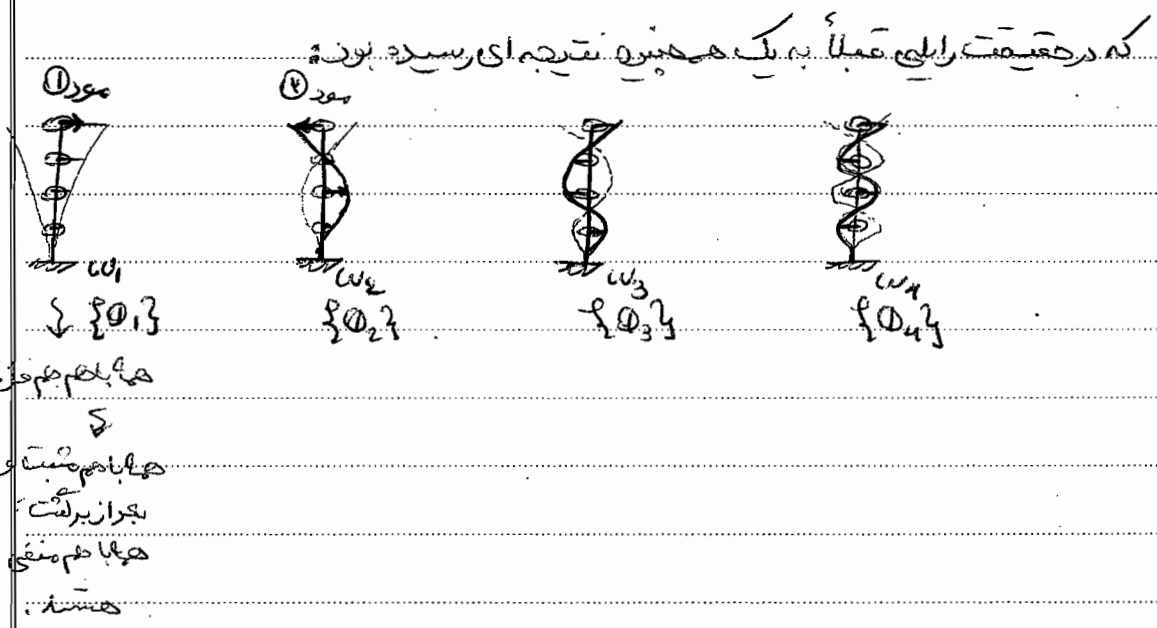 که در حقیقت رایلی قبلاً به یک همچنین نتیجه ای رسیده بود:
مود ① مود ②
ω1 ω2 ω3 ω4
{Φ1} {Φ2} {Φ3} {Φ4}
همه باهم هم فاز
همه باهم مثبت و
بعد از برگشت
همه باهم منفی
هستند.